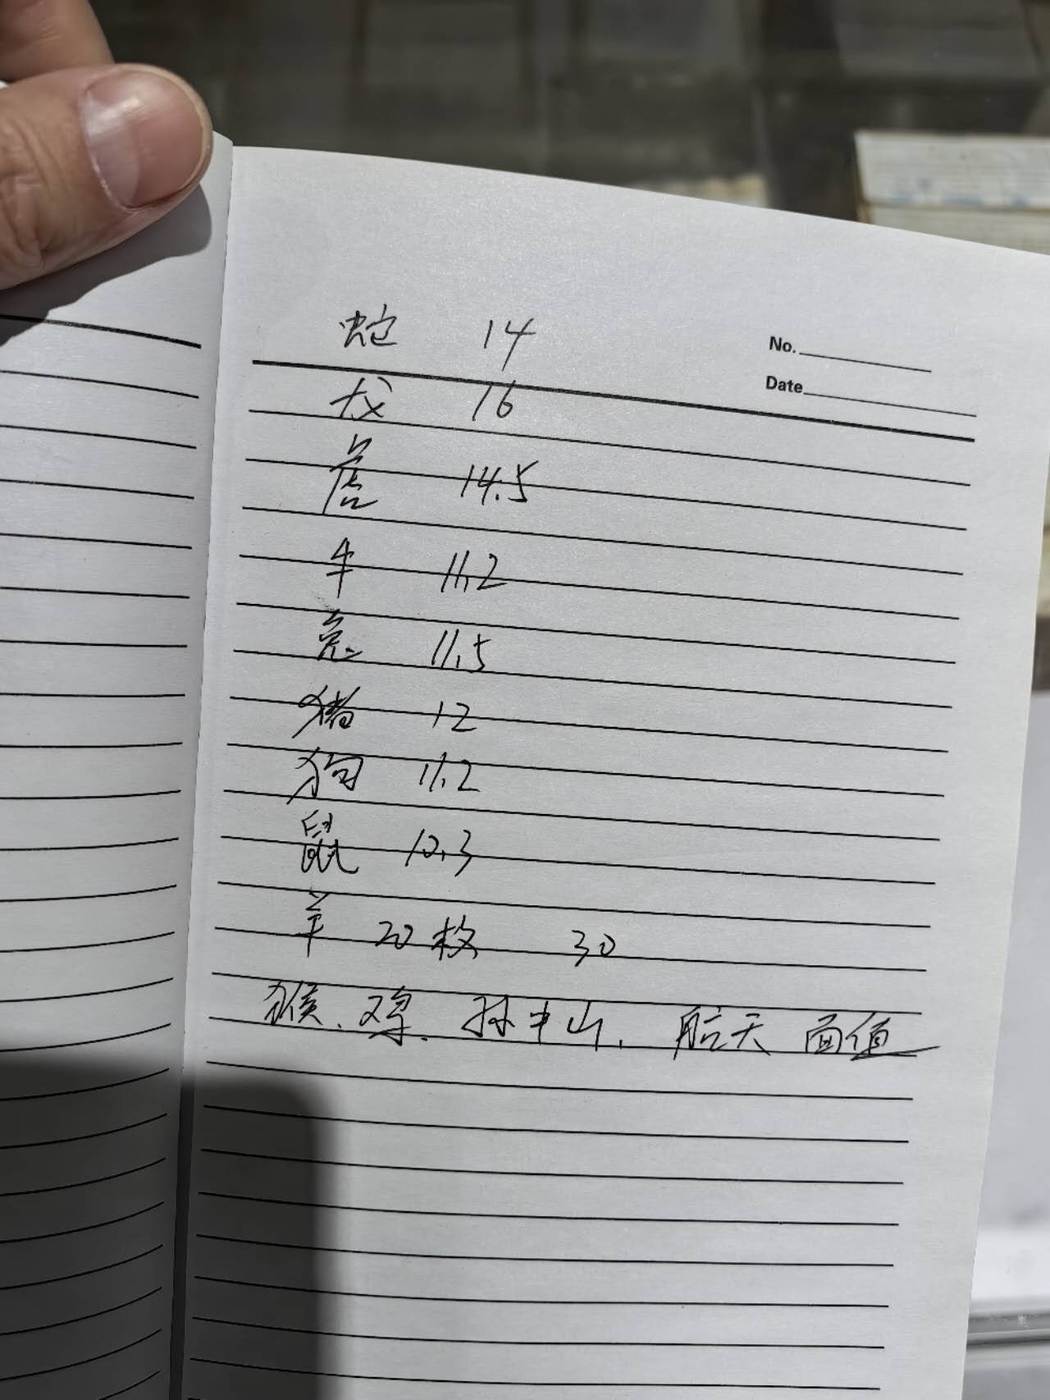 No.
Date
蛇 14
龙 16
虎 14.5
牛 11.2
兔 11.5
猪 12
狗 11.2
鼠 10.3
羊 20枚 30
猴、鸡、孙中山、航天 面值